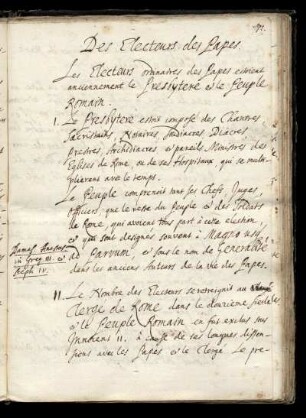 Des Electeurs des Papes.
Les Electeurs ordinaires des Papes estoient
anciennement le Presbytere et le Peuple
Romain.
I. Le Presbytere estoit composé des Chantres
Sacristains, Notaires Soudiacres Diacres,
Prestres Archidiacres et pareils Ministres des
Eglises de Rome, ou de ses Hospitaux, qui se multi-
plierent avec le temps.
Le Peuple comprenoit tout ses Chefs, Juges,
Officiers, que le reste du Peuple et des
de Rome, qui avoient tous part à cette election
et qui sont designés souvent à Magno usq
ad Parvum, et sous le nom de Generalité
dans les anciens Auteurs de la vie des Papes.
in Greg. III. et
Steph IV.
II. Le Nombre des Electeurs se restreignit au
Clergé de Rome dans le douzieme siecle
et le Peuple Romain en fut exclus sous
Innocent II. à cause de ses longues dissen-
sions avec les Papes et le Clergé. Le pre-